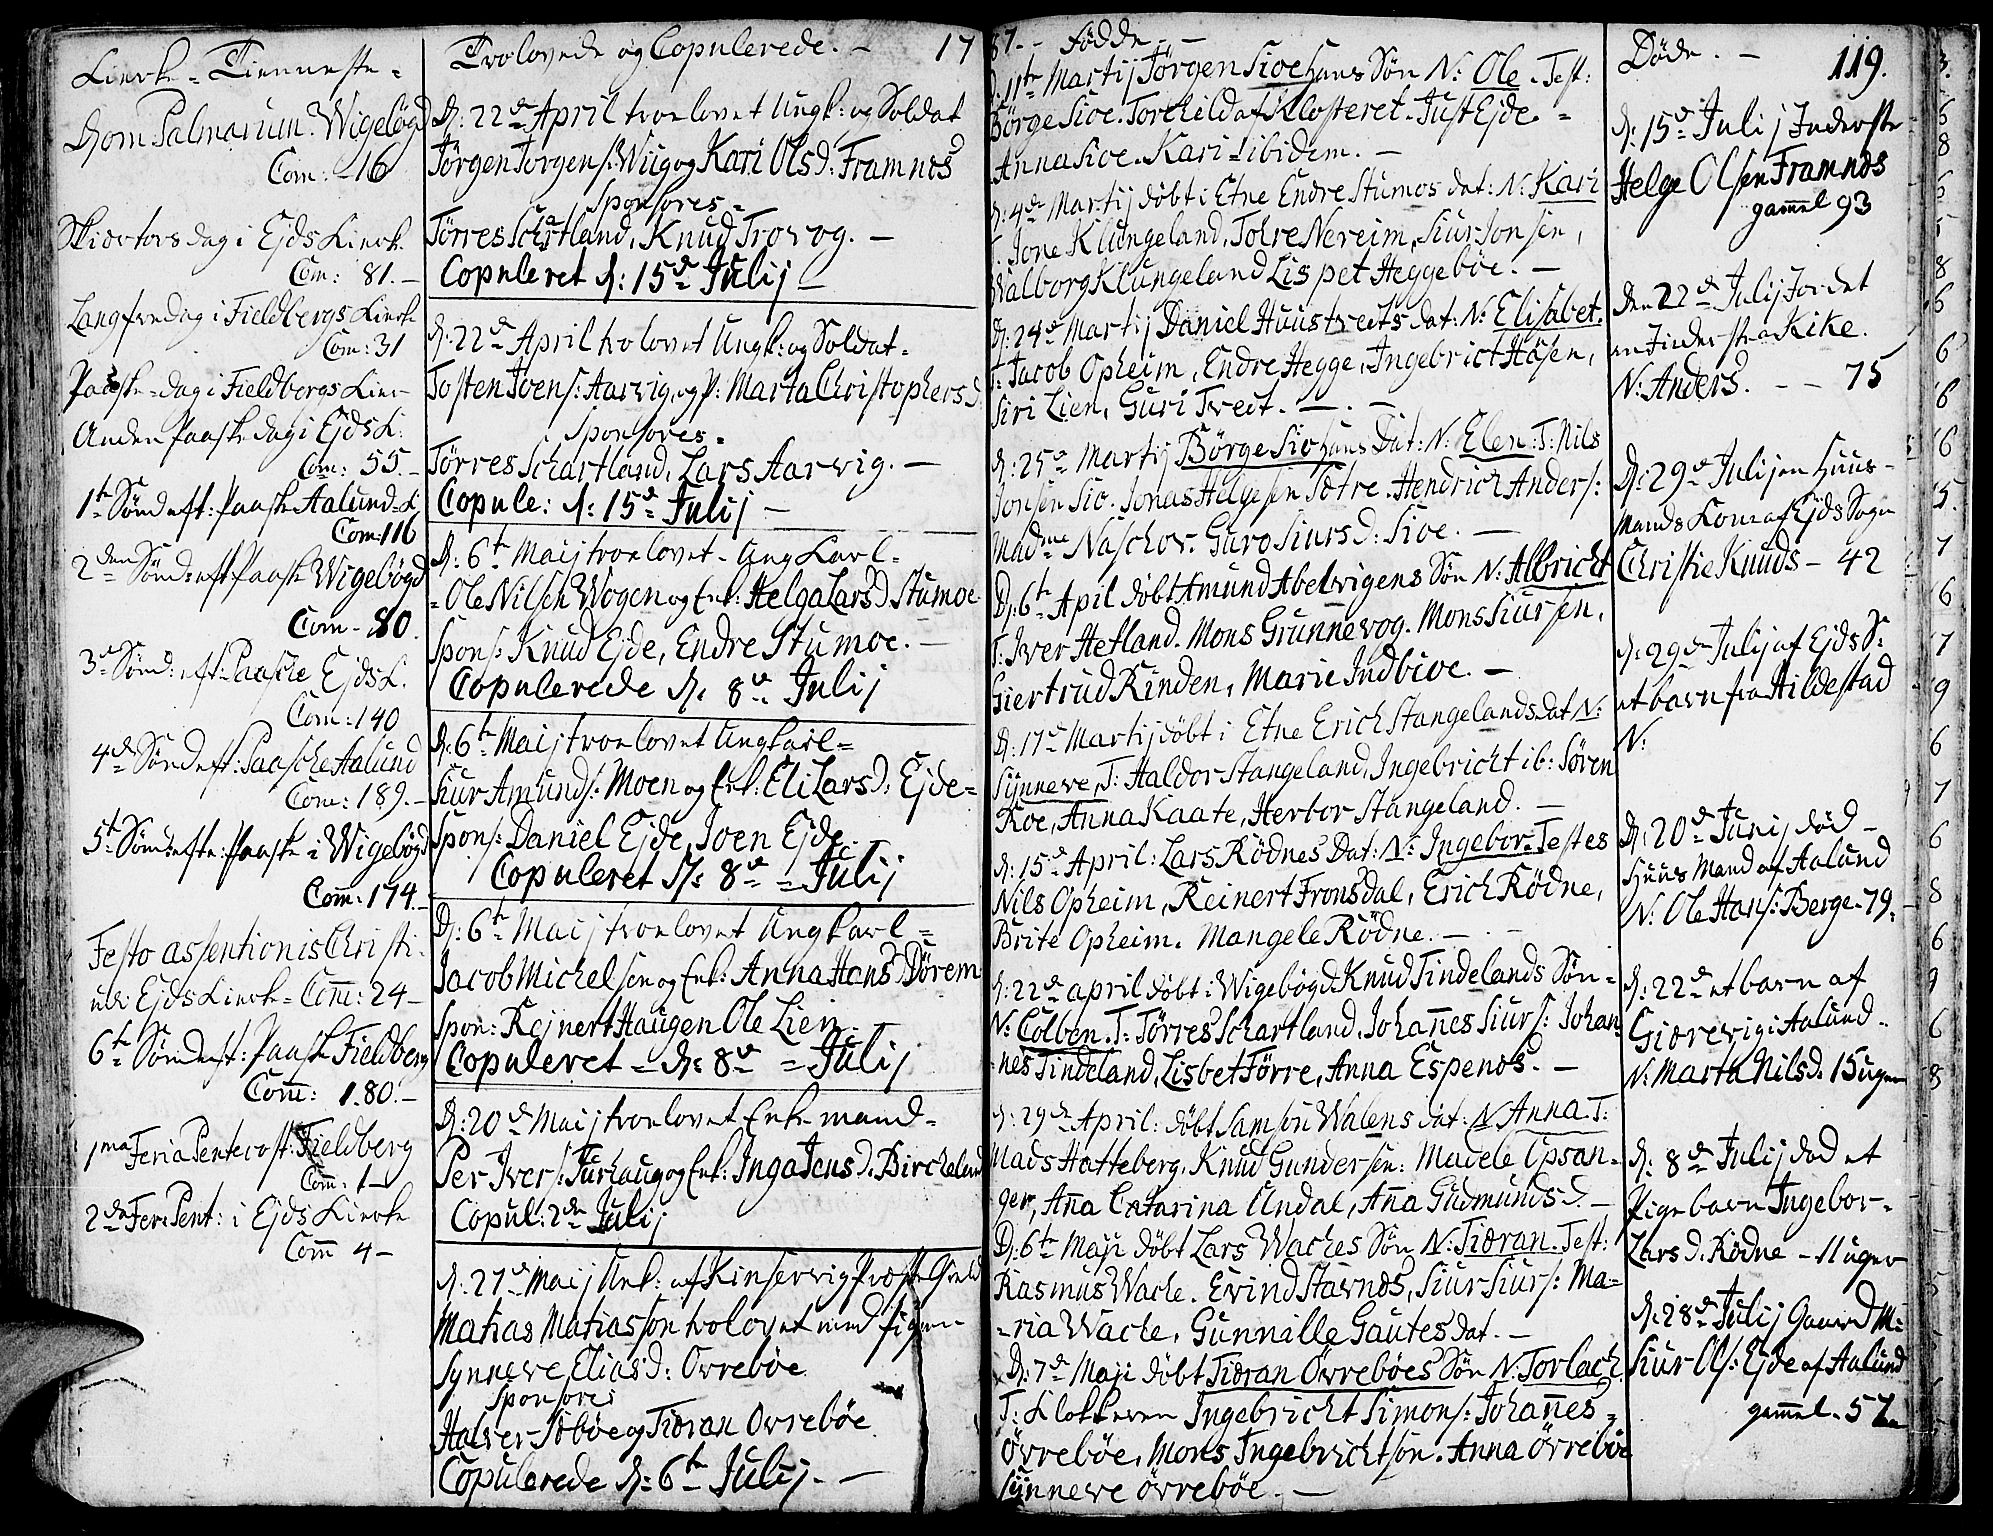 Kierke-Tienneste-
Dom Palmarum. Wigebøgd
Com: 16
Skiertorsdag i Ejds Kierk.
Com: 81.-
Langfredag i Fieldbergs Kierke
Com: 31
Paaske-dag i Fieldbergs Kier-
Anden Paaske dag i Ejds K:
Com: 55.-
1te Sønd eft: Paaske Aalund-K
Com: 116
2den Sønd: eft: Paaske Wigebøgd
Com - 80.
3de Sønd: eft: Paaske Ejds K.
Com: 140
4de Sønd eft: Paasche Aalund
Com: 189.-
5te Sønd: efte: Paaske i Wigebøgd
Com: 174.-
Festo assentionis Christi.
udi Ejds Kierk = Com: 24-
6te Sønd eft: Paaske Fieldberg
Com: 180.-
1ma Feria Pentecost: Fieldberg
Com: 1-
2de Feri Pent: i Ejds Kierke
Com 4-
Trolovede og Copulerede. - 17
D: 22de April troelovet Ungk: og Soldat
Jørgen Jorgens: Wiig og Kari Olsd: Framnes
Sponsores=
Tørres Schartland, Knud Trovog. -
Copuleret d: 15de Julij
D: 22de April trolovet Ungk: og Soldat=
Tosten Ivens: Aarvig, og P: Marta Christophersd
Sponsores=
Tørres Schartland, Lars Aarvig. -
Copule: d: 15de Julij -
D: 6te Maij troelovet - Ung Karl=
=Ole Nilsen Wogen og Enk: Helga Larsd. Stumoe
Spons: Knud Ejde, Endre Stumoe. -
Copulerede d. 8de Julij
D: 6te Maij troelovet Ungkarl=
Siur Amunds: Moen og Enk: Eli Larsd: Ejde=
Spons: Daniel Ejde, Joen Ejde.
Copuleret d: 8de = Julij
D: 6te Maij troelovet Ungkarl=
Jacob Michelsen og Enk: Anna Hans Dørem
Spon: Rejnert Haugen Ole Lien.
Copuleret = d: 8de = Julij
D: 20de Maij troelovet Enke mand=
Per Ivers: Turhaug og Enk: Inga Jensd. Bircheland
Copul: 2de Julij
D: 27de Maij Unk: af Kinservig Præste Gield
Matias Matiassøn trolovet med pigen-
Synneve Eliasd: Ovrebøe
Sponsores
Halver Søbøe og Tidran Ovrebøe
Copulerede d: 6te Julij. -
87. - Fødde. -
D. 11te Martij Jørgen Sioe hans Søn N: Ole - Test:
Børge Sioe. Torchild af Klosteret. Just Ejde =
Anna Sioe. Kari ibidem. -
D. 4de Martij døbt i Etne Endre Stumos dat: N: Kari
T. Jone Klungeland, Tohre Nereim, Siur Jonsen,
Walborg Klungeland Lispet Heggebøe. -
D. 24de Martij Daniel Huustveits dat: N: Elisabet.
T: Jacob Opheim, Endre Hegge, Ingebricht Håsen,
Siri Lien, Guri Tveit. -
D: 25de Martij Børge Sio hans Dat: N: Elen: T: Nils
Jonsen Sio. Jonas Helgesen Sætre. Hendrich Anders:
Madme Naschov. Guro Siursd: Sioe. -
D: 6te April døbt Amund Abelvigens Søn N: Albricht
T: Iver Hetland. Mons Grunnevog. Mons Siursen,
Giertrud Rinden, Marie Indbioe. -
D: 17de Martij døbt i Etne Erich Stangelands Dat N:
Synneve, T: Haldor Stangeland, Ingebricht ib: Søren
Roe, Anna Kaate, Herbor Stangeland. -
D: 15de April: Lars Rødnes Dat: N: Ingebor. Testes
Nils Opheim, Reinert Fronsdal, Erich Rødne,
Brite Opheim. Mangele Rødne. -
D: 22de april døbt i Wigebøgd Knud Tindelands Søn-
N: Colben. T: Tørres Schartland, Johañes Siurs: Johan
=nes Tindeland, Lisbet Førre, Anna Espenos. -
D: 29de April: døbt Samson Walens dat: N Anna T:
Mads Hatteberg, Knud Gundersen: Madele Opsan-
ger, Aña Catarina Undal, Aña Gudmundsd. -
D: 6te Maji døbt Lars Waches Søn N: Tidran. Test:
Rasmus Wache. Evind Stavnøs, Siur Siurs: Ma=
=ria Wache, Gunnille Gautesdat. -
D: 7de Maji døbt Tidran Øvrebøes Søn N: Torlach.
T: Klokkeren Ingebricht Simons: Johañes=
Øvrebøe, Mons Ingebrichtsøn. Anna Øvrebøe
Synneve Øvrebøe. -
Døde. - 119.
D: 15de Julij Inderste
Helge Olsen Framnøs
gammel 93
Den 22de Julij Jordet
en Inderste Kike.
N: Anders. - - 75
D: 29de Julij en Huus-
Mands Kone af Ejds Sogn
Christie Knuds - 42
D. 29de Julij af Ejds S:
et barn fra Hildestad
N:
D: 20de Junij død -
Huus Mand af Aalund
N: Ole Hans: Berge - 79.
D: 22de et barn af
Giørevig i Aalund.
N: Marta Nilsd. 15 uger
D: 8de Julij død et
Pige barn Ingebor-
Larsd. Rødne - 11 uger
D: 28de Julij Gaard M:
Siur Ols: Ejde af Aalund
gammel - 57